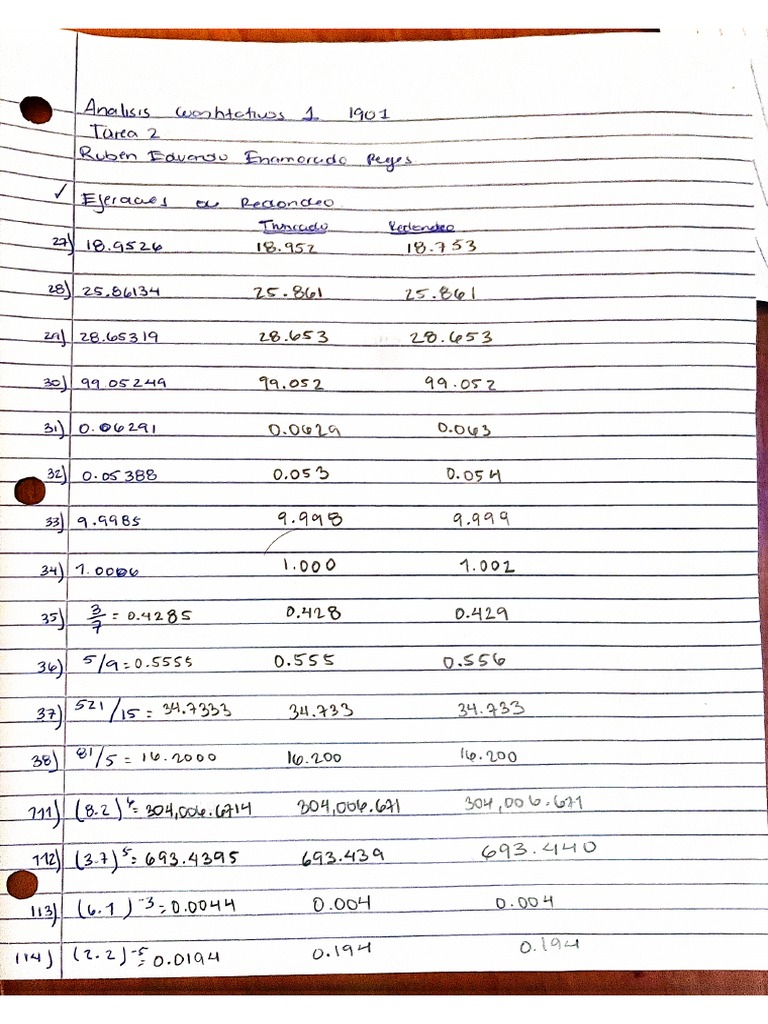 Analisis cuantitativos 1 1901
Tarea 2
Ruben Eduardo Enamorado Reyes
✓ Ejercicios de Redondeo
Truncado Redondeo
27) 18.9526 18.952 18.753
28) 25.86134 25.861 25.861
29) 28.65319 28.653 28.653
30) 99.05249 99.052 99.052
31) 0.06291 0.0629 0.063
32) 0.05388 0.053 0.054
33) 9.9985 9.998 9.999
34) 1.0006 1.000 1.001
35) 3/7 = 0.4285 0.428 0.429
36) 5/9 = 0.5555 0.555 0.556
37) 521/15 = 34.7333 34.733 34.733
38) 81/5 = 16.2000 16.200 16.200
111) (8.2)^6 = 304,006.6714 304,006.671 304,006.671
112) (3.7)^5 = 693.4395 693.439 693.440
113) (6.1)^-3 = 0.0044 0.004 0.004
114) (2.2)^-5 = 0.0194 0.194 0.194